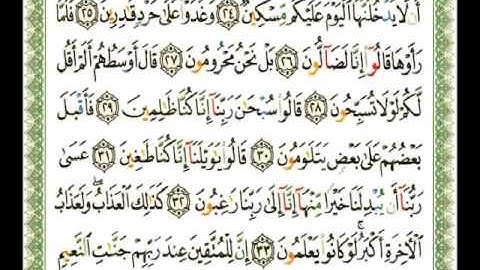 أَن لَّا يَدْخُلَنَّهَا ٱلْيَوْمَ عَلَيْكُم مِّسْكِينٌ ٢٤ وَغَدَوْا۟ عَلَىٰ حَرْدٍ قَـٰدِرِينَ ٢٥ فَلَمَّا
رَأَوْهَا قَالُوٓا۟ إِنَّا لَضَآلُّونَ ٢٦ بَلْ نَحْنُ مَحْرُومُونَ ٢٧ قَالَ أَوْسَطُهُمْ أَلَمْ أَقُل
لَّكُمْ لَوْلَا تُسَبِّحُونَ ٢٨ قَالُوا۟ سُبْحَـٰنَ رَبِّنَآ إِنَّا كُنَّا ظَـٰلِمِينَ ٢٩ فَأَقْبَلَ
بَعْضُهُمْ عَلَىٰ بَعْضٍ يَتَلَـٰوَمُونَ ٣٠ قَالُوا۟ يَـٰوَيْلَنَآ إِنَّا كُنَّا طَـٰغِينَ ٣١ عَسَىٰ
رَبُّنَآ أَن يُبْدِلَنَا خَيْرًا مِّنْهَآ إِنَّآ إِلَىٰ رَبِّنَا رَٰغِبُونَ ٣٢ كَذَٰلِكَ ٱلْعَذَابُ ۖ وَلَعَذَابُ
ٱلْـَٔاخِرَةِ أَكْبَرُ ۚ لَوْ كَانُوا۟ يَعْلَمُونَ ٣٣ إِنَّ لِلْمُتَّقِينَ عِندَ رَبِّهِمْ جَنَّـٰتِ ٱلنَّعِيمِ